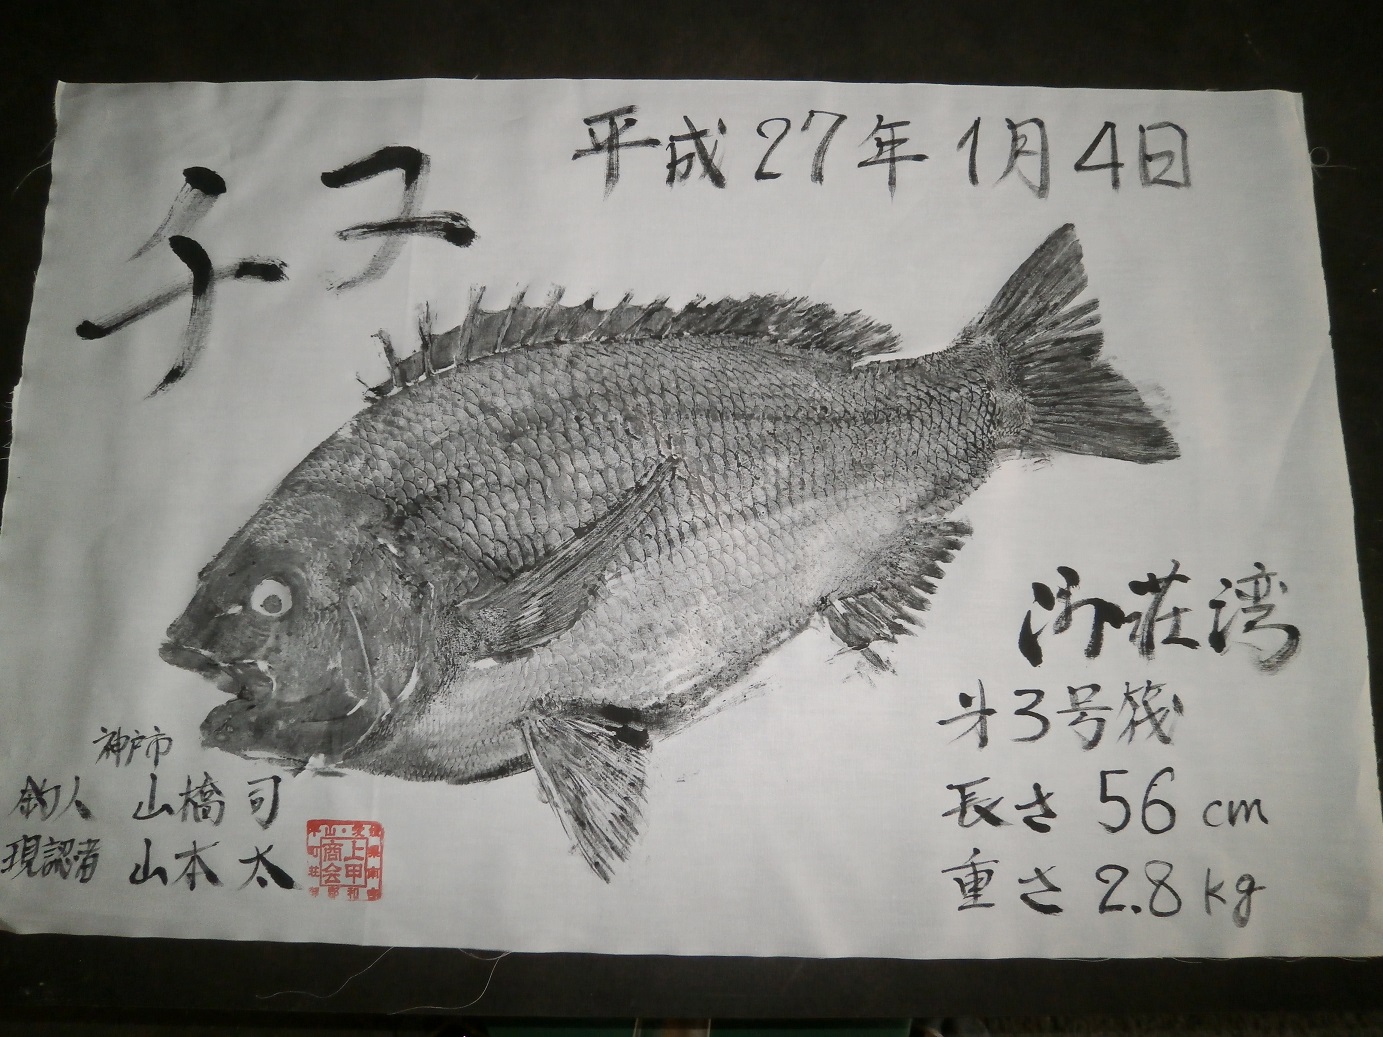 平成27年1月4日
チヌ
御荘湾
米3号筏
長さ 56 cm
重さ 2.8 kg
神戸市
釣人 山橋 司
現認者 山本 太
上甲商会